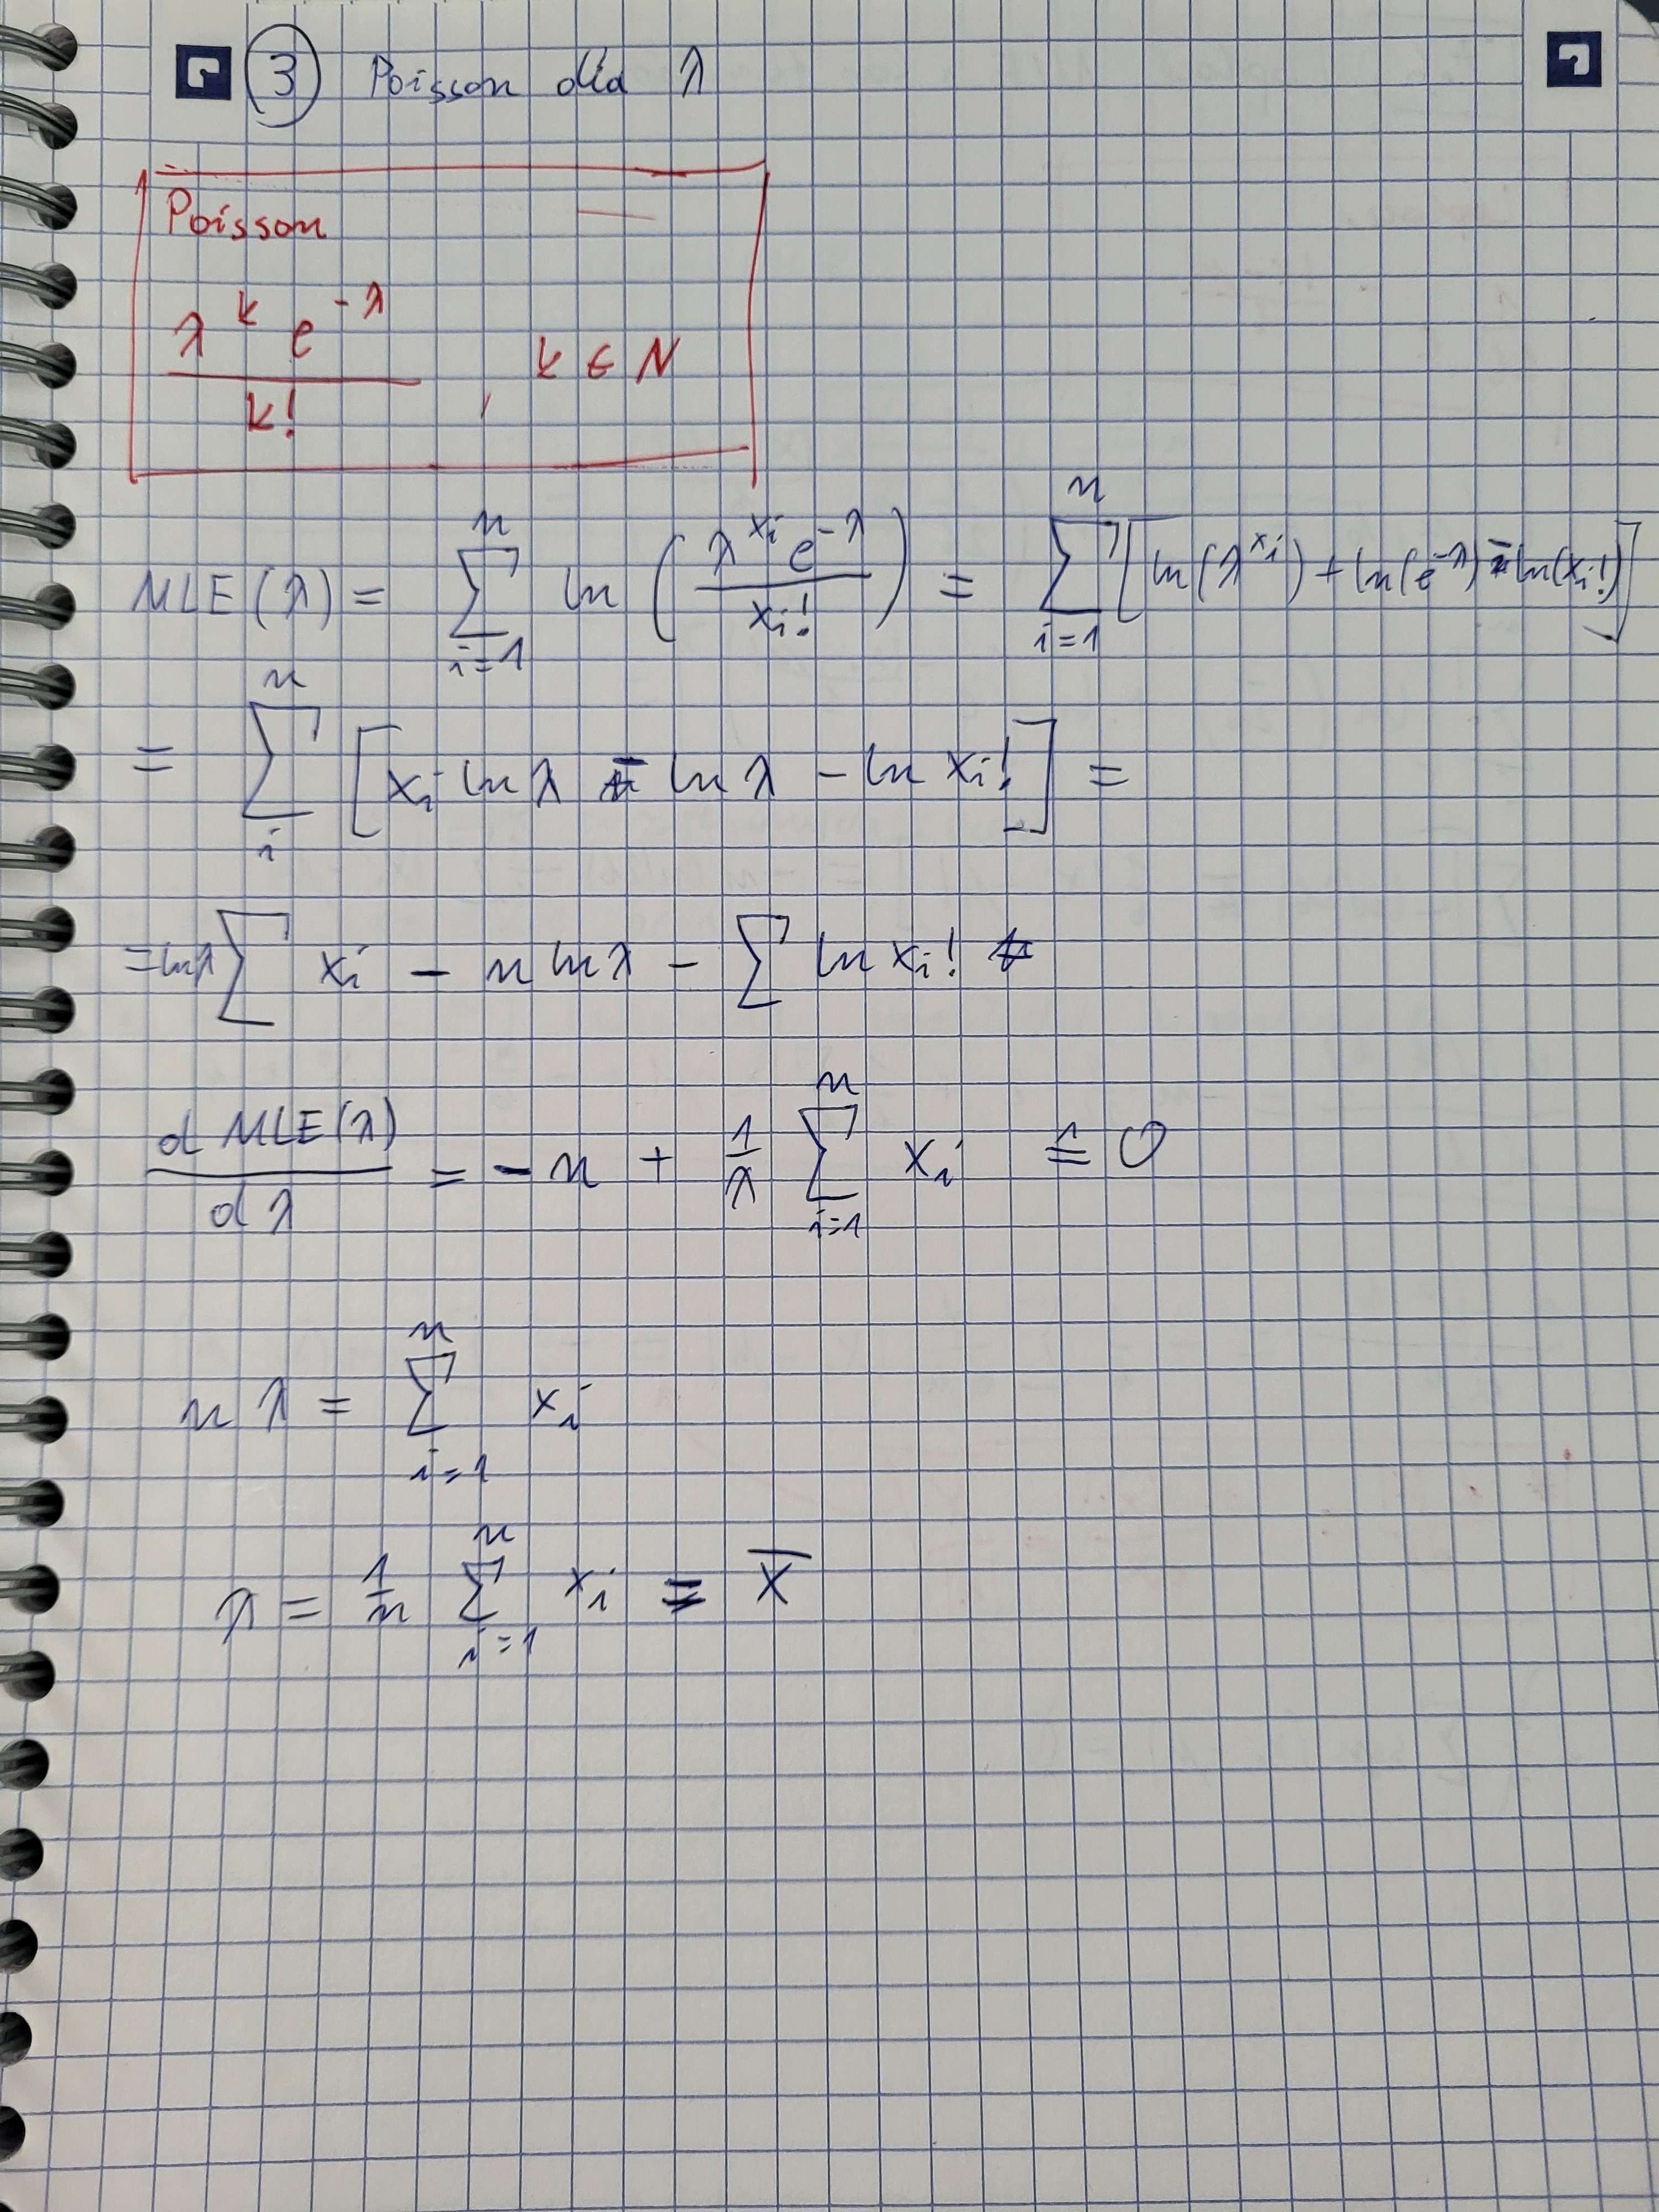 ③ Poisson dla λ
Poisson
λ^k e^{-λ} / k! , k ∈ N
MLE(λ) = ∑_{i=1}^{n} ln (λ^{x_i} e^{-λ} / x_i!) = ∑_{i=1}^{n} [ln(λ^{x_i}) + ln(e^{-λ}) - ln(x_i!)]
= ∑_{i}^{n} [x_i ln λ - ln λ - ln x_i!] =
= ln λ ∑ x_i - n ln λ - ∑ ln x_i!
d MLE(λ) / dλ = - n + 1/λ ∑_{i=1}^{n} x_i ≙ 0
n λ = ∑_{i=1}^{n} x_i
λ = 1/n ∑_{i=1}^{n} x_i = X̄